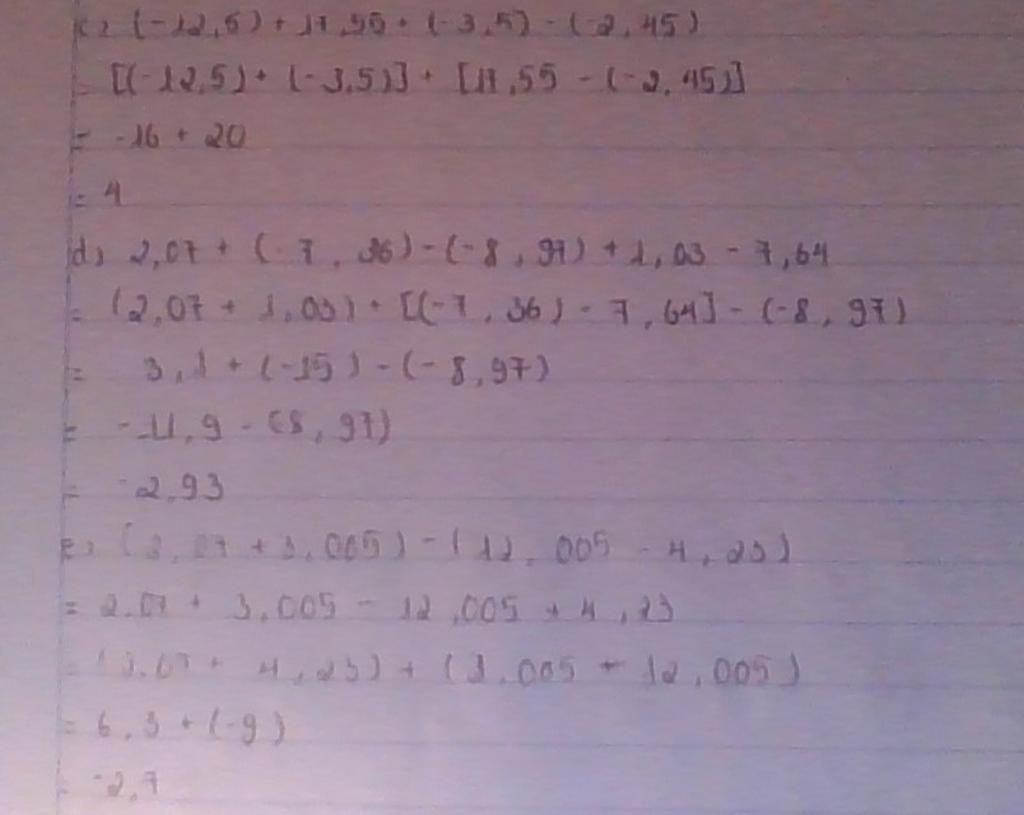 c, (-12,5) + 17,55 + (-3,5) - (-2,45)
= [(-12,5) + (-3,5)] + [17,55 - (-2,45)]
= -16 + 20
= 4
d, 2,07 + (-7,36) - (-8,97) + 1,03 - 7,64
= (2,07 + 1,03) + [(-7,36) - 7,64] - (-8,97)
= 3,1 + (-15) - (-8,97)
= -11,9 - (8,97)
= -2,93
e, (2,07 + 3,005) - (12,005 - 4,23)
= 2,07 + 3,005 - 12,005 + 4,23
= (2,07 + 4,23) + (3,005 - 12,005)
= 6,3 + (-9)
= -2,7